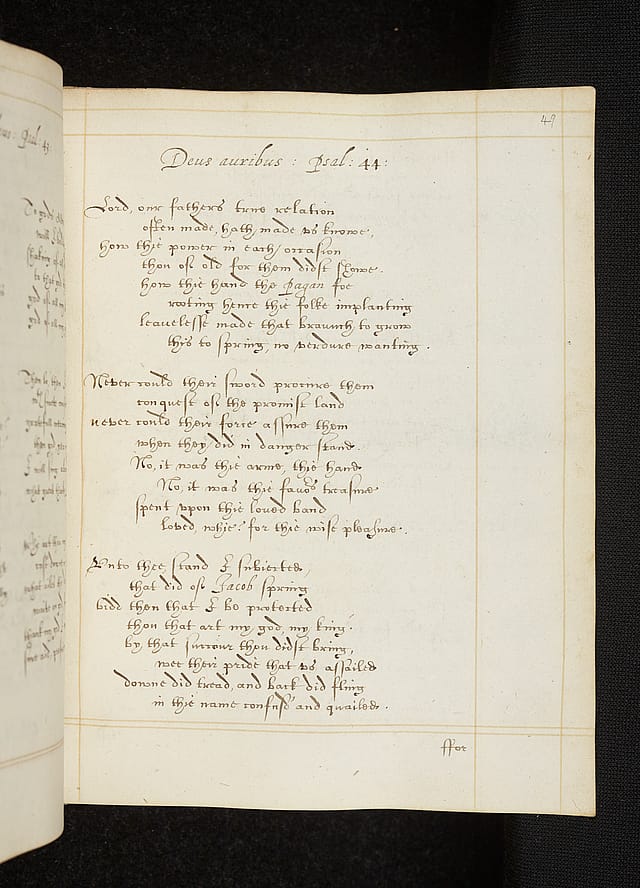 49
Deus auribus : Psal: 44:
Lord, our fathers true relation
often made, hath made vs knowe,
how thie power in each occasion
thou of old for them didst showe.
how thie hand the Pagan foe
rooting hence thie folke implanting
leauelesse made that braunch to grow
this to spring, no verdure wanting.
Never could their sword procure them
conquest of the promist land
never could their force assure them
when they did in danger stand.
No, it was thie arme, thie hand
No, it was thie favors treasure
spent vpon thie loved band
loved, whie? for thie wise pleasure.
Vnto thee, stand I subiected,
that did of Jacob spring
bidd then that I be protected
thou that art my god, my king.
by that succour thou didst bring,
wee their pride that vs assailed
downe did tread, and back did fling
in thie name confus'd and quailed.
ffor
Psal: 43